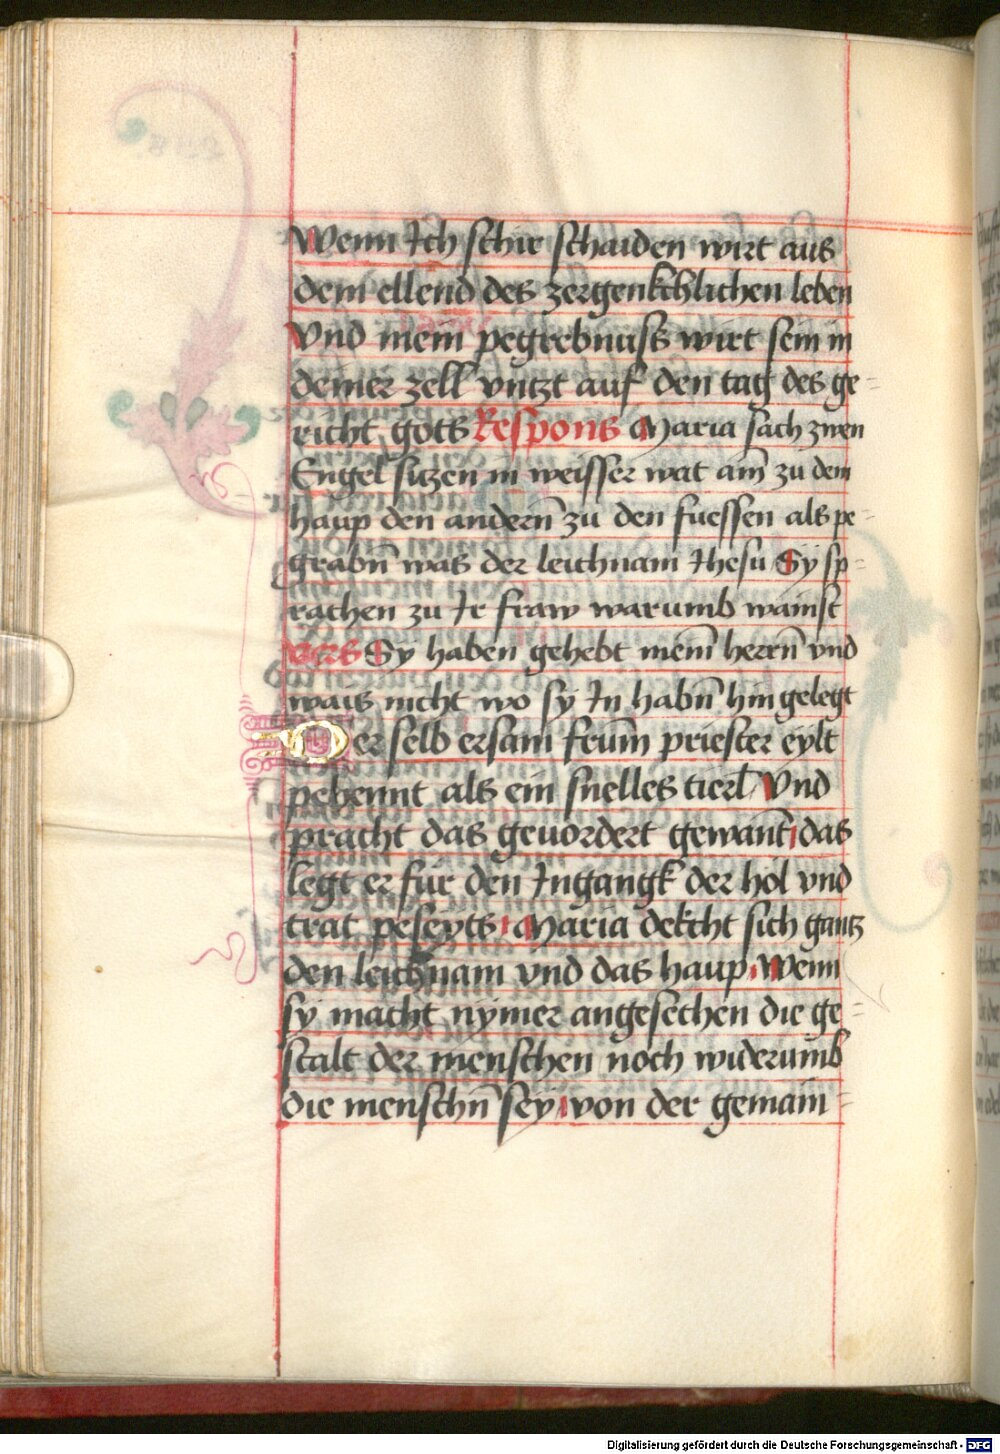 Wenn Ich schir schaiden wirt aus
dem ellend des zergenkchlichen leben
Vnd mein pegrebnuss wirt sein in
deiner zell vntzt auf den tag des ge=
richt gots Respons Maria sach zwen
Engel sitzen in weisser wat am̄ zu dem
haup den andern̄ zu den fuessen als pe=
grabn̄ was der leichnam Ihesu Sy sp=
rachen zu Ir fraw warumb wainst
vers Sy haben gehebt mein̄ heren̄ vnd
wais nicht wo sy In habn̄ hin gelegt
Der selb ersam frum̄ priester eylt
pehennt als ein snelles tierl Vnd
pracht das geuordert gewant̄ das
legt er für den Ingangk der hol vnd
trat peseyts Maria dekcht sich gantz
den leichnam vnd das haup Wenn
sy macht nymer angesechen die ge=
stalt der menschen noch widerumb
die menschn̄ sey von der gemain=
Digitalisierung gefördert durch die Deutsche Forschungsgemeinschaft - DFG